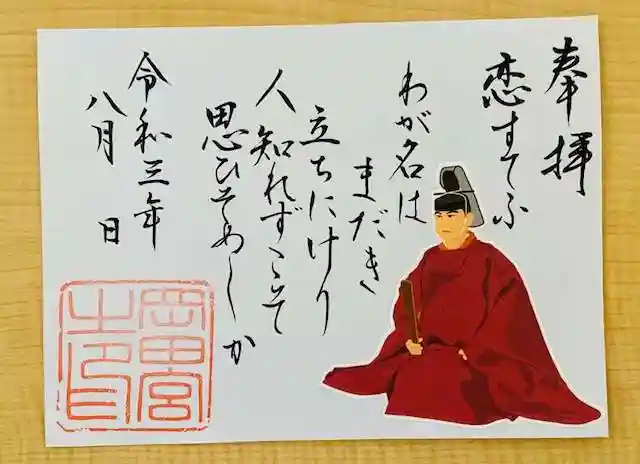 奉拝
恋すてふ
わが名は
まだき
立ちにけり
人知れずこそ
思ひそめしか
令和三年
八月　日
岡田宮
之印